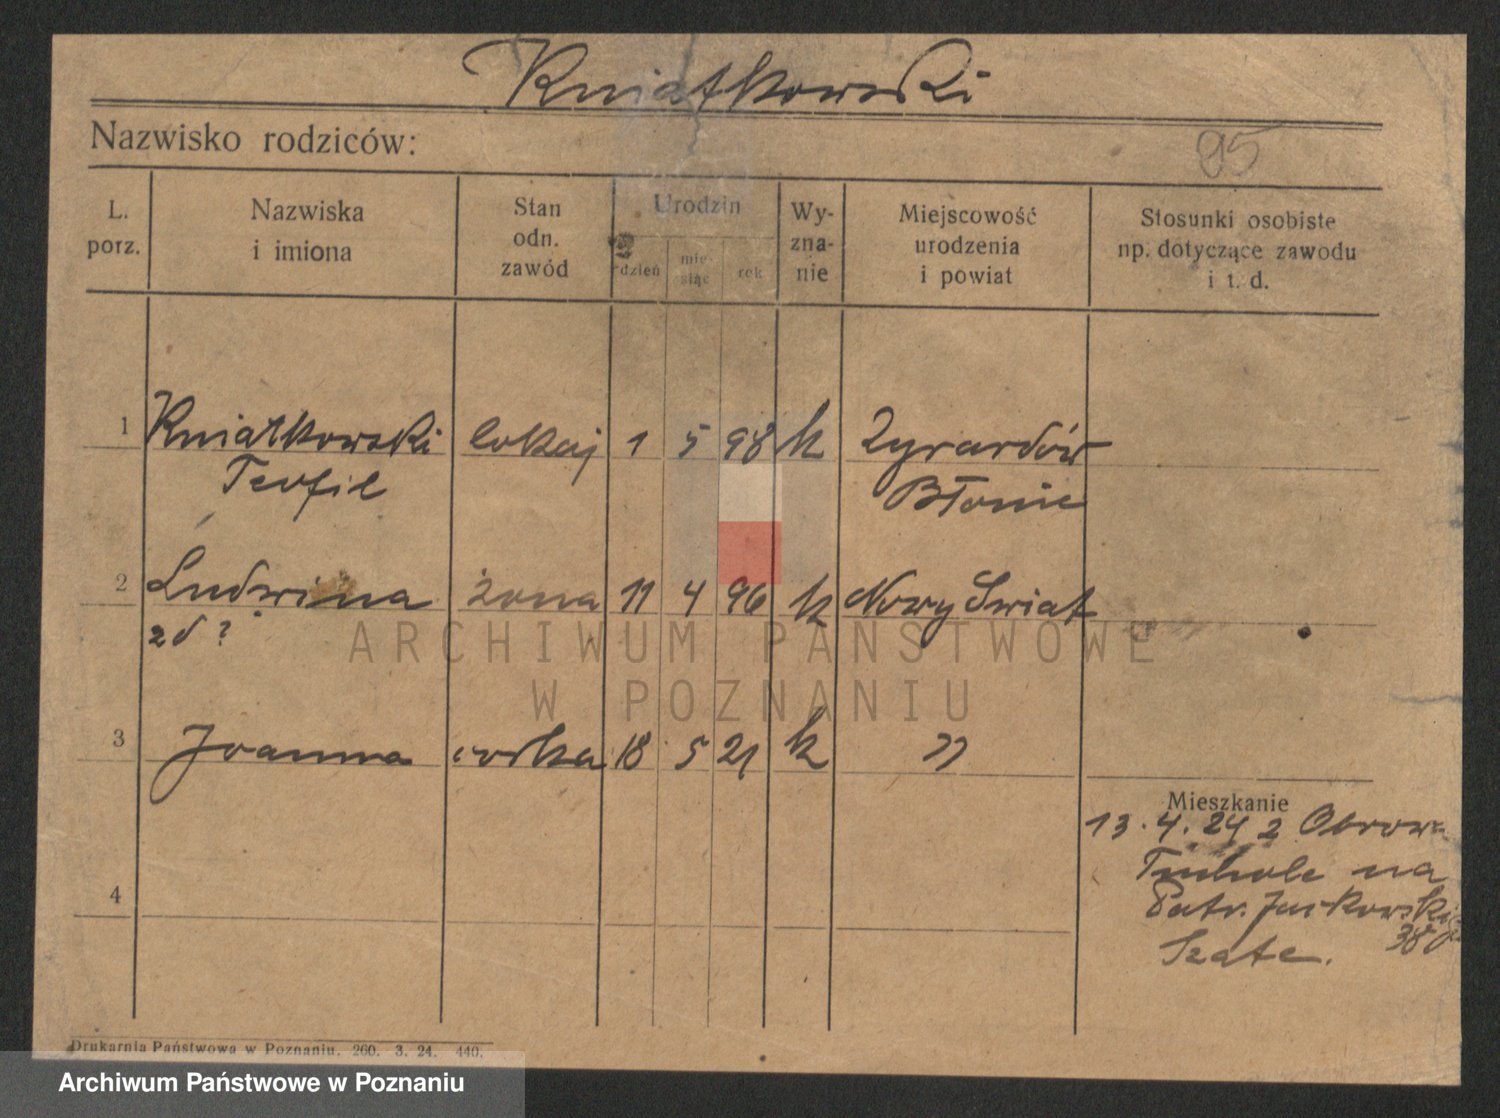 Kwiatkowski
Nazwisko rodziców:
95
L. porz.
Nazwiska i imiona
Stan odn. zawód
Urodzin
dzień
mie-
siąc
rok
Wy-
zna-
nie
Miejscowość urodzenia i powiat
Stosunki osobiste np. dotyczące zawodu i t. d.
1 Kwiatkowski lokaj 1 5 98 k Zyrardów
Teofil Błonie
2 Ludwina żona 11 4 96 k Nowy Swiat
zd ?
3 Joanna córka 18 5 21 k "
Mieszkanie
13.4.24 z
Tuchole na
Patr. Jackowskiego
38
4
ARCHIWUM PAŃSTWOWE
W POZNANIU
Drukarnia Państwowa w Poznaniu. 260. 3. 24. 440.
Archiwum Państwowe w Poznaniu